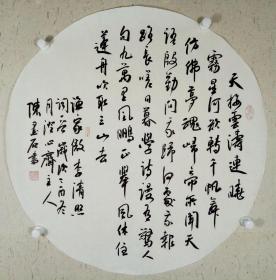 天接雲濤連曉
霧星河欲轉千帆舞
仿佛夢魂歸帝所聞天
語殷勤問我歸何處我報
路長嗟日暮學詩謾有驚人
句九萬里風鵬正舉風休住
蓬舟吹取三山去
漁家傲李清照
詞 歲次 冬
月 心齋主人
陳玉石書